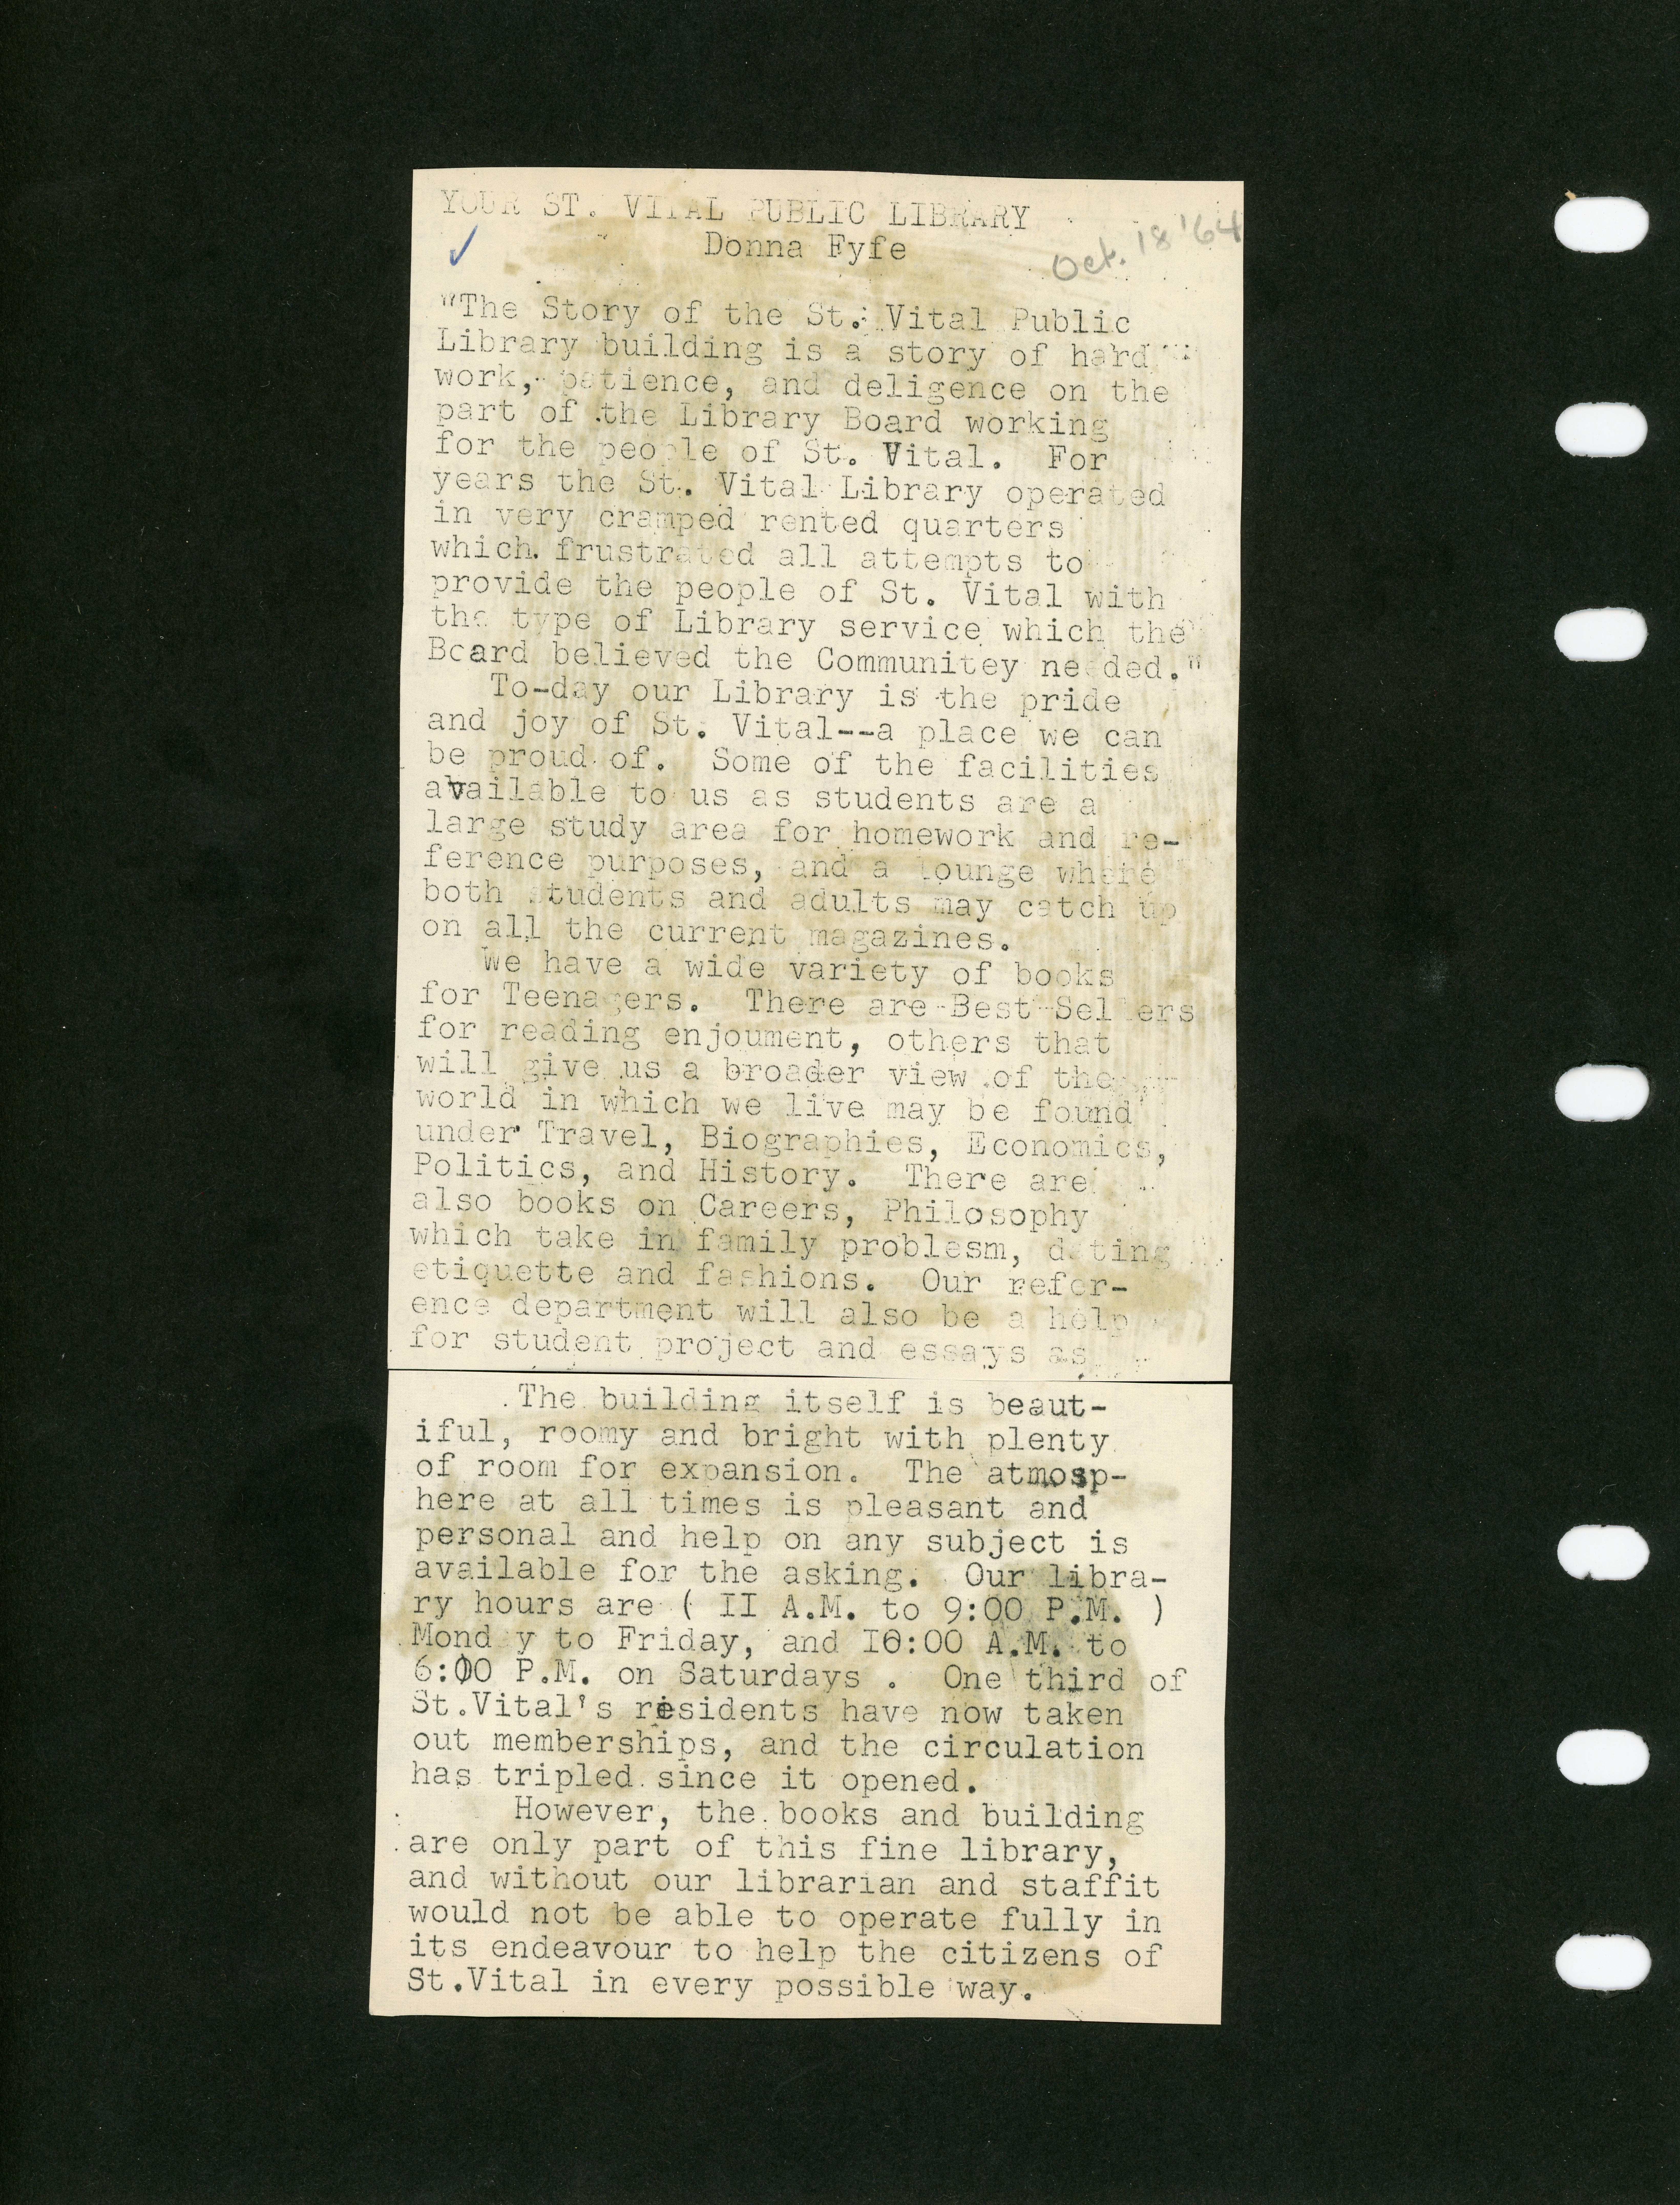 YOUR ST. VITAL PUBLIC LIBRARY
Donna Fyfe
Oct. 18 '64
"The Story of the St. Vital Public
Library building is a story of hard
work, patience, and deligence on the
part of the Library Board working
for the people of St. Vital. For
years the St. Vital Library operated
in very cramped rented quarters
which frustrated all attempts to
provide the people of St. Vital with
the type of Library service which the
Board believed the Communitey needed."
To-day our Library is the pride
and joy of St. Vital--a place we can
be proud of. Some of the facilities
available to us as students are a
large study area for homework and re-
ference purposes, and a lounge where
both students and adults may catch up
on all the current magazines.
We have a wide variety of books
for Teenagers. There are Best Sellers
for reading enjoument, others that
will give us a broader view of the
world in which we live may be found
under Travel, Biographies, Economics,
Politics, and History. There are
also books on Careers, Philosophy
which take in family problesm, dating
etiquette and fashions. Our refer-
ence department will also be a help
for student project and essays as
The building itself is beaut-
iful, roomy and bright with plenty
of room for expansion. The atmosp-
here at all times is pleasant and
personal and help on any subject is
available for the asking. Our libra-
ry hours are ( II A.M. to 9:00 P.M. )
Mond y to Friday, and I0:00 A.M. to
6:00 P.M. on Saturdays . One third of
St.Vital's residents have now taken
out memberships, and the circulation
has tripled since it opened.
However, the books and building
are only part of this fine library,
and without our librarian and staffit
would not be able to operate fully in
its endeavour to help the citizens of
St.Vital in every possible way.